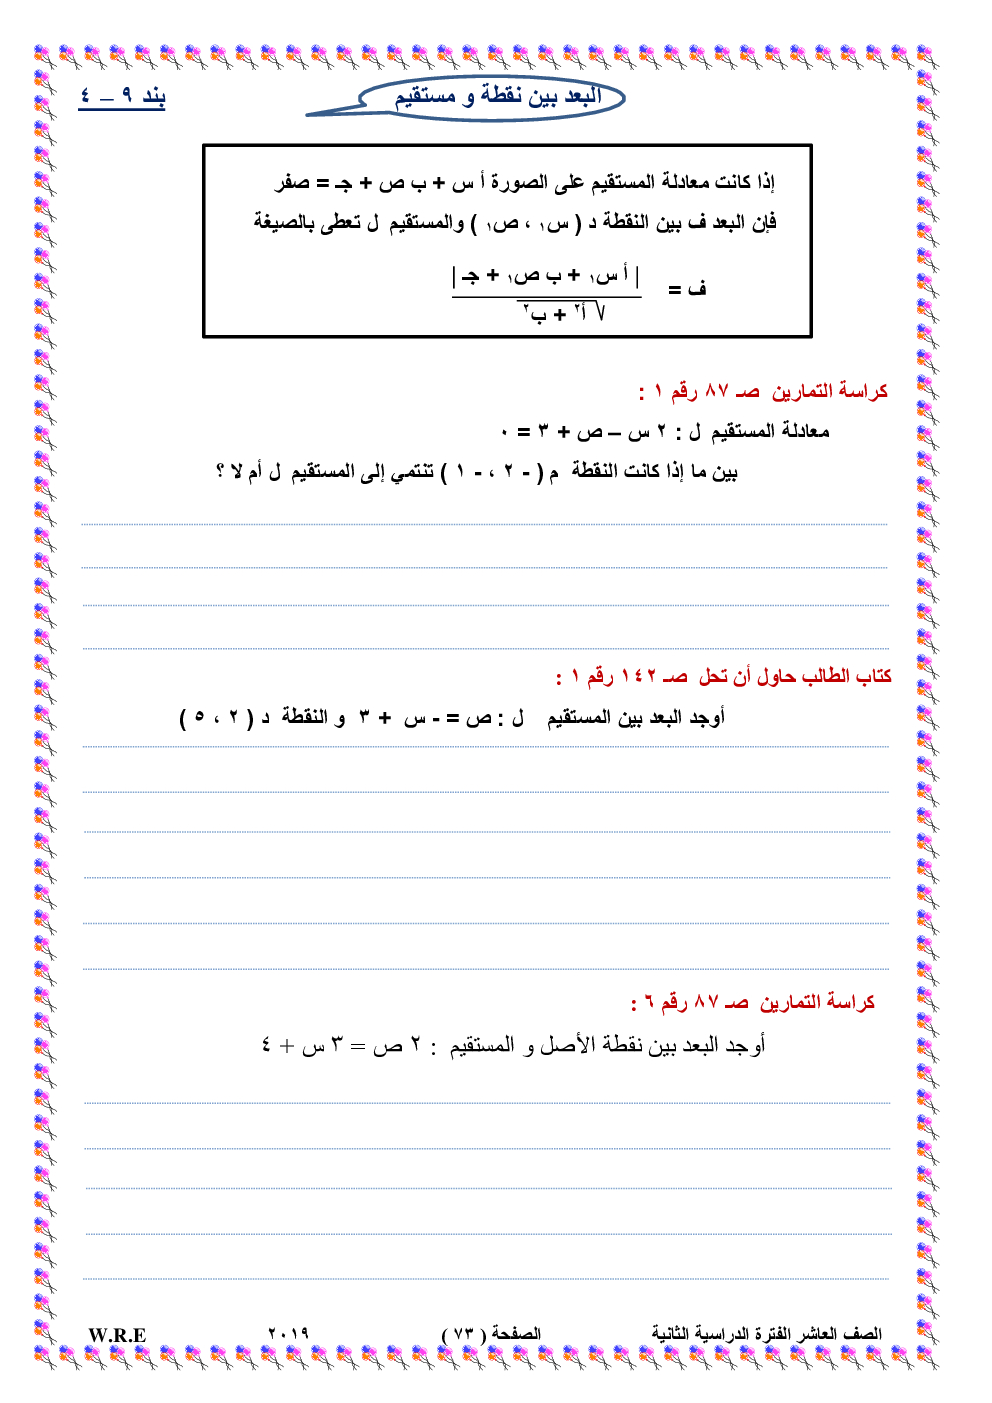 البعد بين نقطة و مستقيم
بند ٩ – ٤
إذا كانت معادلة المستقيم على الصورة أ س + ب ص + جـ = صفر
فإن البعد ف بين النقطة د ( س₁ ، ص₁ ) والمستقيم ل تعطى بالصيغة
ف = | أ س₁ + ب ص₁ + جـ |
√ أ² + ب²
كراسة التمارين صـ ٨٧ رقم ١ :
معادلة المستقيم ل : ٢ س – ص + ٣ = ٠
بين ما إذا كانت النقطة م ( - ٢ ، - ١ ) تنتمي إلى المستقيم ل أم لا ؟
كتاب الطالب حاول أن تحل صـ ١٤٢ رقم ١ :
أوجد البعد بين المستقيم ل : ص = - س + ٣ و النقطة د ( ٢ ، ٥ )
كراسة التمارين صـ ٨٧ رقم ٦ :
أوجد البعد بين نقطة الأصل و المستقيم : ٢ ص = ٣ س + ٤
الصف العاشر الفترة الدراسية الثانية الصفحة ( ٧٣ ) ٢٠١٩ W.R.E